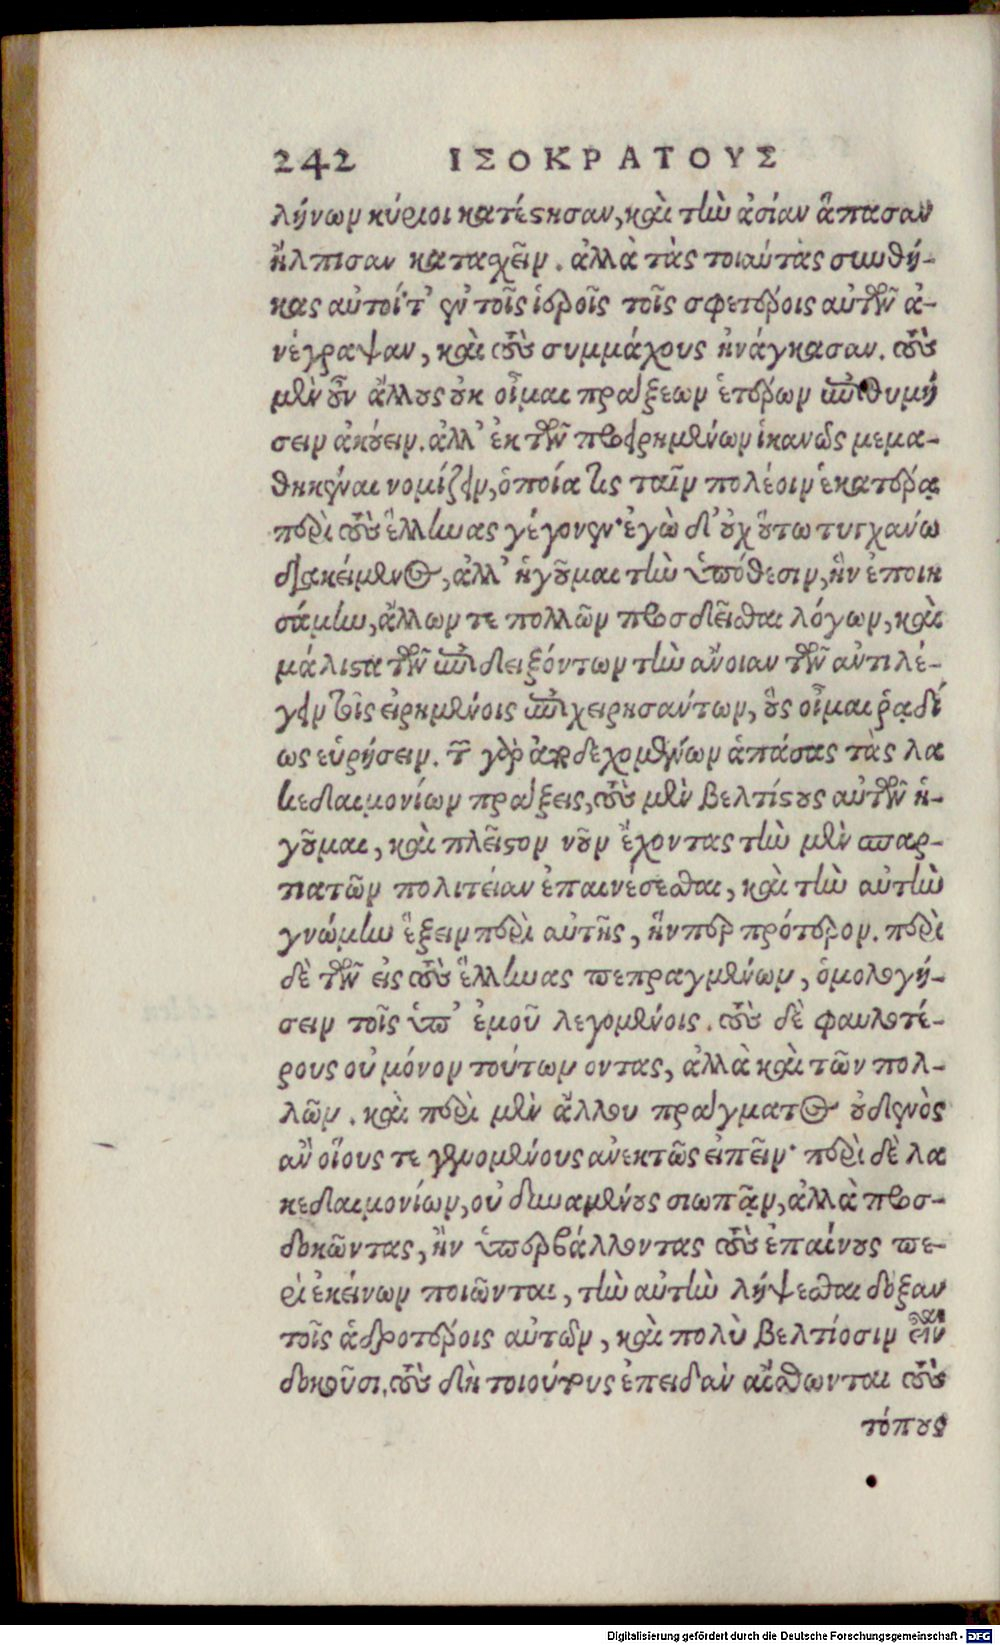 242 ΙΣΟΚΡΑΤΟΥΣ
λήνων κύριοι κατέστησαν, καὶ τὴν ἀσίαν ἅπασαν
ἤλπισαν κατασχεῖν. ἀλλὰ τὰς τοιαύτας συνθή-
κας αὐτοί τ' ἐν τοῖς ἱεροῖς τοῖς σφετέροις αὐτῶν ἀ-
νέγραψαν, καὶ τοὺς συμμάχους ἠνάγκασαν. τοὺς
μὲν οὖν ἄλλους οὐκ οἶμαι πράξεων ἑτέρων ἐπιθυμή
σειν ἀκούειν. ἀλλ' ἐκ τῶν προειρημένων ἱκανῶς μεμα-
θηκέναι νομίζειν, ὁποία τις ταῖν πολέοιν ἑκατέρα
περὶ τοὺς ἕλληνας γέγονεν· ἐγὼ δ' οὐχ οὕτω τυγχάνω
διακείμενος, ἀλλ' ἡγοῦμαι τὴν ὑπόθεσιν, ἣν ἐποιη
σάμην, ἄλλων τε πολλῶν προσδεῖσθαι λόγων, καὶ
μάλιστα τῶν ἐπιδειξόντων τὴν ἄνοιαν τῶν ἀντιλέ-
γειν τοῖς εἰρημένοις ἐπιχειρησάντων, οὓς οἶμαι ῥᾳδί
ως εὑρήσειν. τῶν γὰρ ἀποδεχομένων ἁπάσας τὰς λα
κεδαιμονίων πράξεις, τοὺς μὲν βελτίστους αὐτῶν ἡ-
γοῦμαι, καὶ πλεῖστον νοῦν ἔχοντας τὴν μὲν σπαρ-
τιατῶν πολιτείαν ἐπαινέσεσθαι, καὶ τὴν αὐτὴν
γνώμην ἕξειν περὶ αὐτῆς, ἥνπερ πρότερον. περὶ
δὲ τῶν εἰς τοὺς ἕλληνας πεπραγμένων, ὁμολογή-
σειν τοῖς ὑπ' ἐμοῦ λεγομένοις. τοὺς δὲ φαυλοτέ-
ρους οὐ μόνον τούτων οντας, ἀλλὰ καὶ τῶν πολ-
λῶν. καὶ περὶ μὲν ἄλλου πράγματος οὐδενὸς
ἂν οἵους τε γενομένους ἀνεκτῶς εἰπεῖν· περὶ δὲ λα
κεδαιμονίων, οὐ δυναμένους σιωπᾷν, ἀλλὰ προσ-
δοκῶντας, ἢν ὑπερβάλλοντας τοὺς ἐπαίνους πε-
ρὶ ἐκείνων ποιῶνται, τὴν αὐτὴν λήψεσθαι δόξαν
τοῖς ἁδροτέροις αὐτῶν, καὶ πολὺ βελτίοσιν εἶναι
δοκοῦσι. τοὺς δὴ τοιούτους ἐπειδὰν αἴσθωνται τοὺς
τόπους
Digitalisierung gefördert durch die Deutsche Forschungsgemeinschaft - DFG